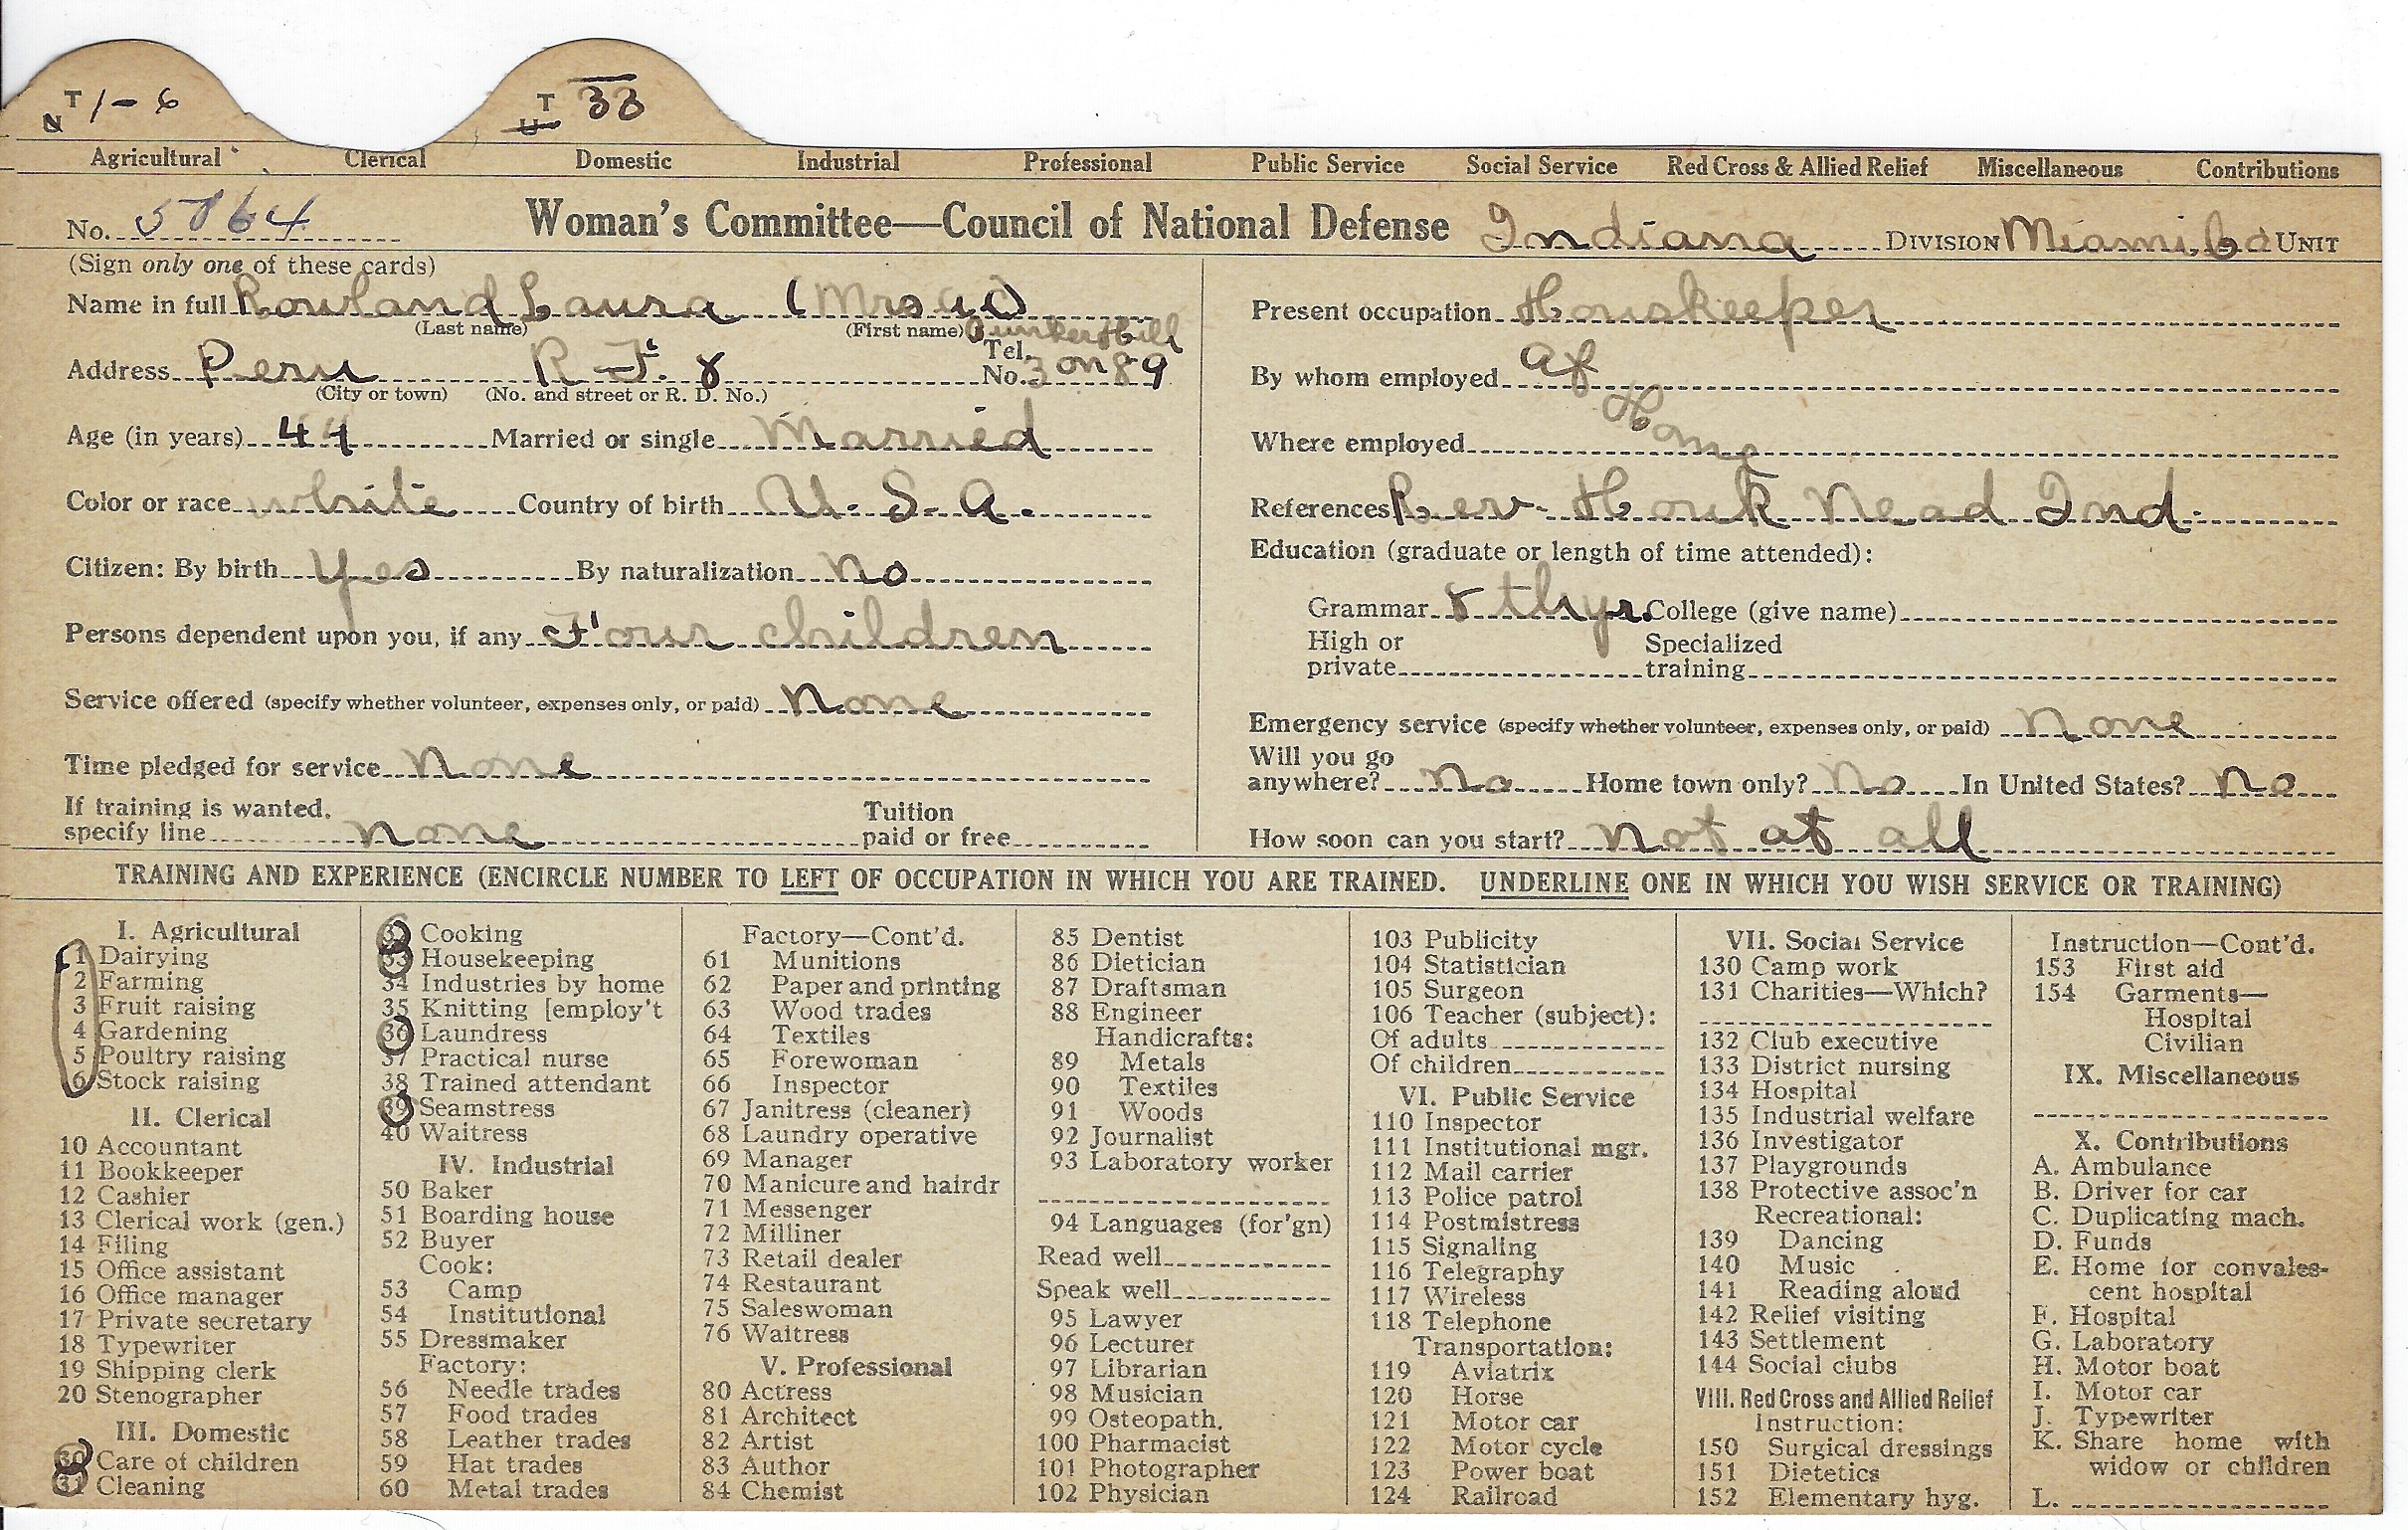 T 1-6 T 33
N U
Agricultural Clerical Domestic Industrial Professional Public Service Social Service Red Cross & Allied Relief Miscellaneous Contributions
No. 5864 Woman's Committee—Council of National Defense Indiana DIVISION Miami Co UNIT
(Sign only one of these cards)
Name in full Rowland Laura (Mrs
(Last name) (First name) Bunker Hill
Address Peru R F. 8 Tel. No. 3 on 89
(City or town) (No. and street or R. D. No.)
Age (in years) 44 Married or single Married
Color or race white Country of birth U. S. A.
Citizen: By birth Yes By naturalization No
Persons dependent upon you, if any Four children
Service offered (specify whether volunteer, expenses only, or paid) None
Time pledged for service None
If training is wanted, Tuition
specify line none paid or free
Present occupation Houskeeper
By whom employed at
Home
Where employed
References Rev. Houk Mead Ind.
Education (graduate or length of time attended):
Grammar 8 th yr. College (give name)
High or Specialized
private training
Emergency service (specify whether volunteer, expenses only, or paid) None
Will you go
anywhere? No Home town only? No In United States? No
How soon can you start? Not at all
TRAINING AND EXPERIENCE (ENCIRCLE NUMBER TO LEFT OF OCCUPATION IN WHICH YOU ARE TRAINED. UNDERLINE ONE IN WHICH YOU WISH SERVICE OR TRAINING)
I. Agricultural
1 Dairying
2 Farming
3 Fruit raising
4 Gardening
5 Poultry raising
6 Stock raising
II. Clerical
10 Accountant
11 Bookkeeper
12 Cashier
13 Clerical work (gen.)
14 Filing
15 Office assistant
16 Office manager
17 Private secretary
18 Typewriter
19 Shipping clerk
20 Stenographer
III. Domestic
30 Care of children
31 Cleaning
32 Cooking
33 Housekeeping
34 Industries by home
35 Knitting [employ't
36 Laundress
37 Practical nurse
38 Trained attendant
39 Seamstress
40 Waitress
IV. Industrial
50 Baker
51 Boarding house
52 Buyer
Cook:
53 Camp
54 Institutional
55 Dressmaker
Factory:
56 Needle trades
57 Food trades
58 Leather trades
59 Hat trades
60 Metal trades
Factory—Cont'd.
61 Munitions
62 Paper and printing
63 Wood trades
64 Textiles
65 Forewoman
66 Inspector
67 Janitress (cleaner)
68 Laundry operative
69 Manager
70 Manicure and hairdr
71 Messenger
72 Milliner
73 Retail dealer
74 Restaurant
75 Saleswoman
76 Waitress
V. Professional
80 Actress
81 Architect
82 Artist
83 Author
84 Chemist
85 Dentist
86 Dietician
87 Draftsman
88 Engineer
Handicrafts:
89 Metals
90 Textiles
91 Woods
92 Journalist
93 Laboratory worker
94 Languages (for'gn)
Read well
Speak well
95 Lawyer
96 Lecturer
97 Librarian
98 Musician
99 Osteopath.
100 Pharmacist
101 Photographer
102 Physician
103 Publicity
104 Statistician
105 Surgeon
106 Teacher (subject):
Of adults
Of children
VI. Public Service
110 Inspector
111 Institutional mgr.
112 Mail carrier
113 Police patrol
114 Postmistress
115 Signaling
116 Telegraphy
117 Wireless
118 Telephone
Transportation:
119 Aviatrix
120 Horse
121 Motor car
122 Motor cycle
123 Power boat
124 Railroad
VII. Social Service
130 Camp work
131 Charities—Which?
132 Club executive
133 District nursing
134 Hospital
135 Industrial welfare
136 Investigator
137 Playgrounds
138 Protective assoc'n
Recreational:
139 Dancing
140 Music
141 Reading aloud
142 Relief visiting
143 Settlement
144 Social clubs
VIII. Red Cross and Allied Relief
Instruction:
150 Surgical dressings
151 Dietetics
152 Elementary hyg.
Instruction—Cont'd.
153 First aid
154 Garments—
Hospital
Civilian
IX. Miscellaneous
X. Contributions
A. Ambulance
B. Driver for car
C. Duplicating mach.
D. Funds
E. Home for convales-
cent hospital
F. Hospital
G. Laboratory
H. Motor boat
I. Motor car
J. Typewriter
K. Share home with
widow or children
L.